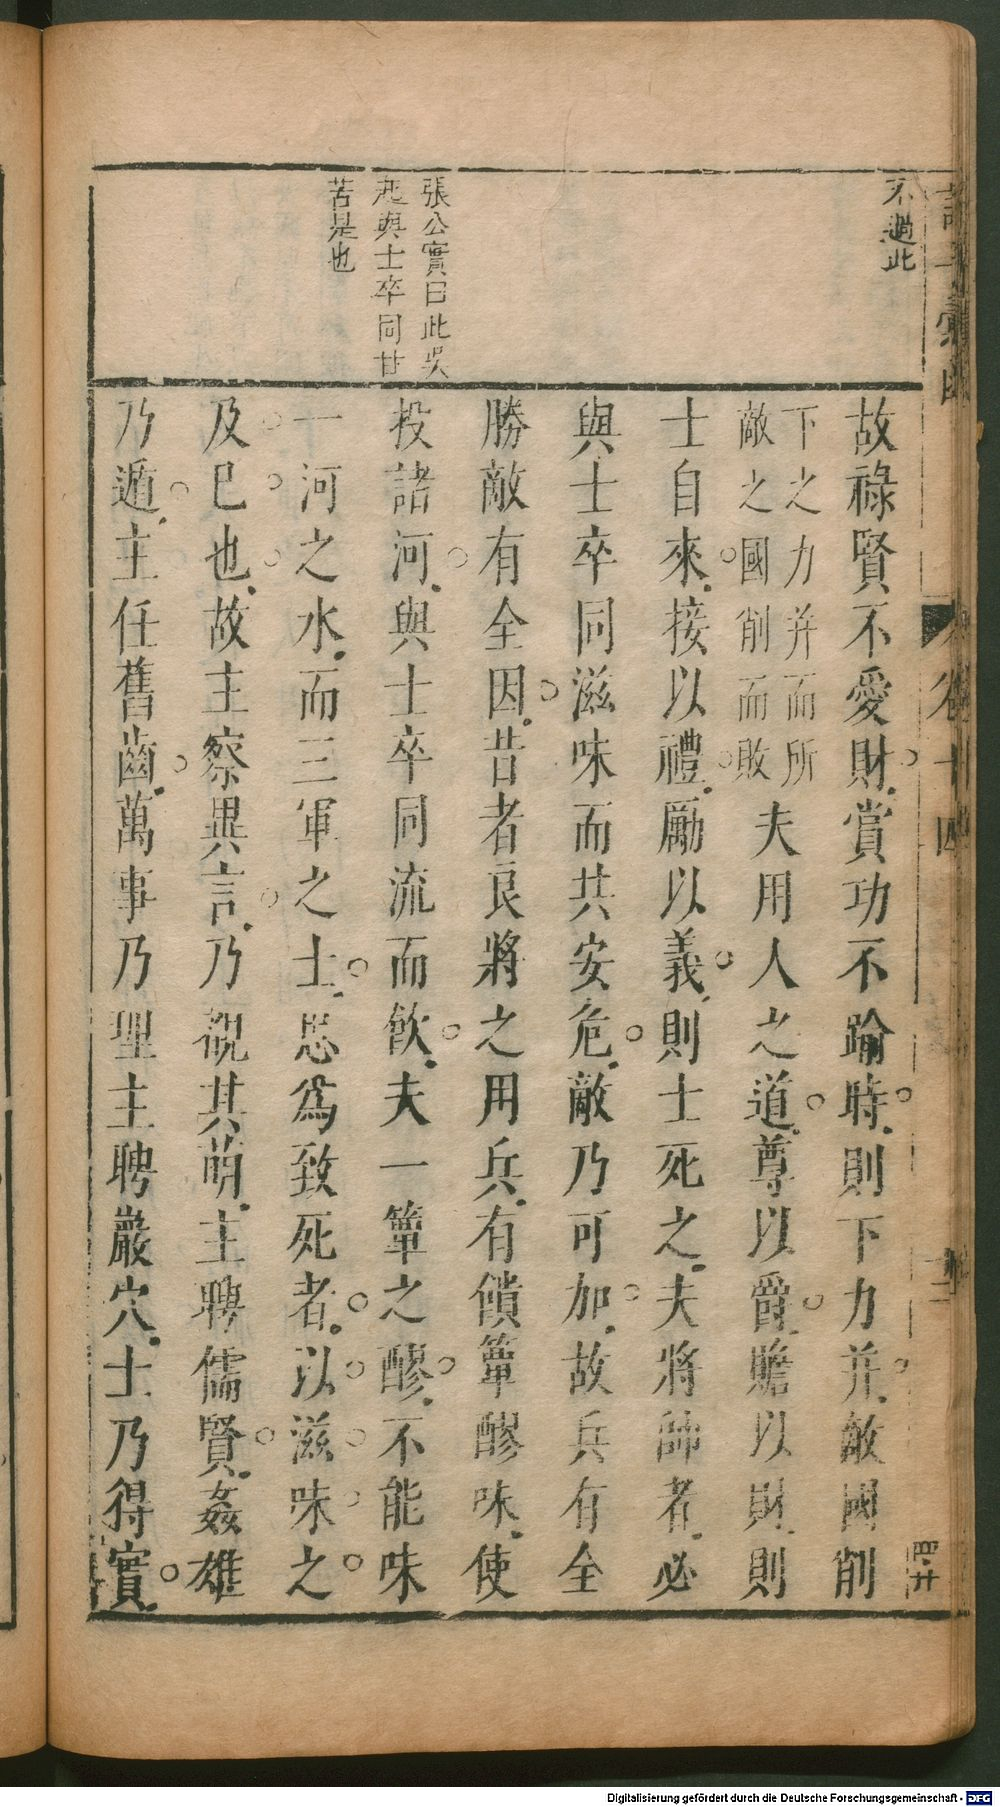 不過此
張公實曰此吳
起與士卒同甘
苦是也
故祿賢不愛財賞功不踰時則下力并敵國削
下之力并而所
敵之國削而敗
夫用人之道尊以爵贍以財則
士自來接以禮勵以義則士死之夫將帥者必
與士卒同滋味而共安危敵乃可加故兵有全
勝敵有全因昔者良將之用兵有饋簞醪味使
投諸河與士卒同流而飲夫一簞之醪不能味
一河之水而三軍之士思為致死者以滋味之
及已也故主察異言乃覩其萌主聘儒賢姦雄
乃遁主任舊齒萬事乃理主聘巖穴士乃得實
卷十四
Digitalisierung gefördert durch die Deutsche Forschungsgemeinschaft - DFG